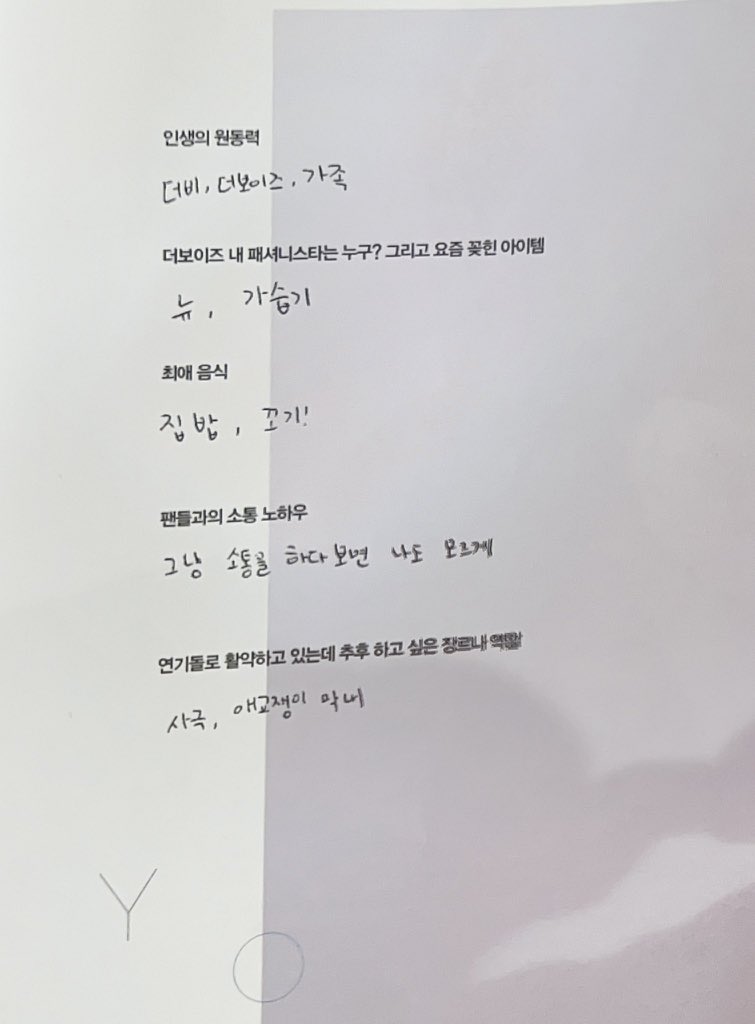 인생의 원동력
더비, 더보이즈, 가족
더보이즈 내 패셔니스타는 누구? 그리고 요즘 꽂힌 아이템
뉴, 가습기
최애 음식
집밥, 꼬기!
팬들과의 소통 노하우
그냥 소통을 하다보면 나도 모르게
연기돌로 활약하고 있는데 추후 하고 싶은 장르나 역할
사극, 애교쟁이 막내
Y